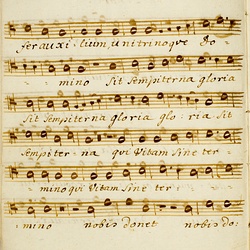 fer auxilium, unitrinoque Do-
mino Sit Sempiterna gloria
Sit Sempiterna gloria glo- ria Sit
Sempiter- na qui Vitam Sine ter-
mino qui Vitam Sine ter-
mino nobis donet nobis do: